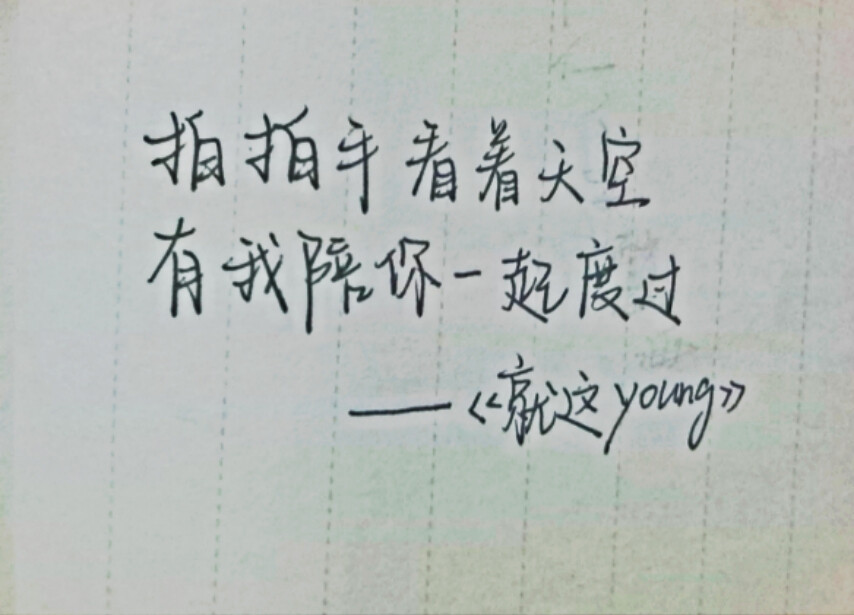 拍拍手看着天空
有我陪你一起度过
——《就这young》